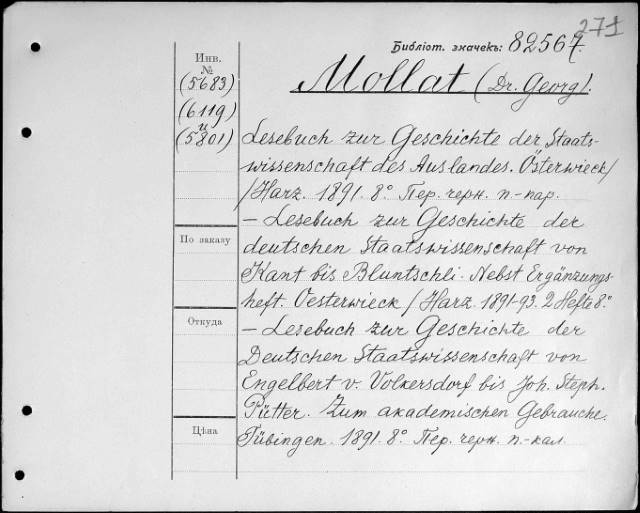 271
Библіот. значекъ: 82567.
Mollat (Dr. Georg).
Инв.
№
(5683)
(6119)
и
(5801)
Lesebuch zur Geschichte der Staats-
wissenschaft des Auslandes. Österwieck/
/Harz. 1891. 8º. Пер. черн. п.-пар.
— Lesebuch zur Geschichte der
deutschen Staatswissenschaft von
Kant bis Bluntschli. Nebst Ergänzungs-
heft. Oesterwieck / Harz. 1891-93. 2 Hefte 8º
— Lesebuch zur Geschichte der
Deutschen Staatswissenschaft von
Engelbert v. Volkersdorf bis Joh. Steph.
Pütter. Zum akademischen Gebrauche.
Tübingen. 1891. 8º. Пер. черн. п.-кал.
По заказу
Откуда
Цѣна